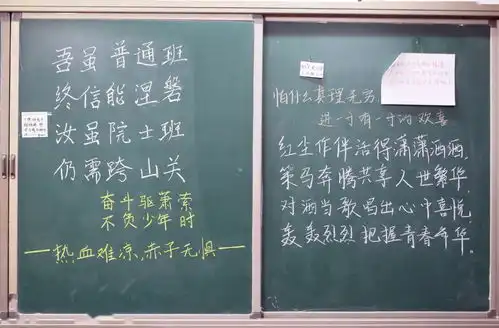 吾虽普通班
终信能涅磐
汝虽院士班
仍需跨山关
奋斗驱萧索
不负少年时
热血难凉,赤子无惧
怕什么真理无穷
进一寸有一寸的欢喜
红尘作伴活得潇潇洒洒,
策马奔腾共享人世繁华,
对酒当歌唱出心中喜悦,
轰轰烈烈把握青春年华.